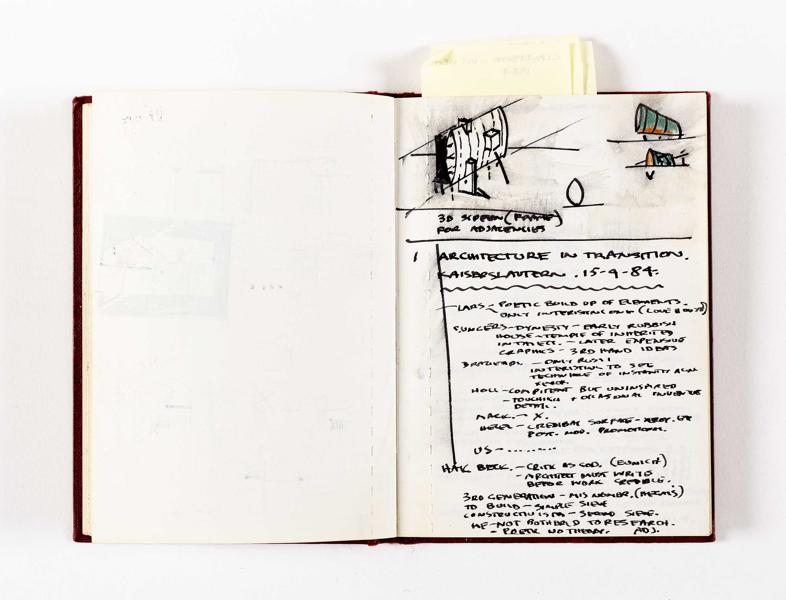 3D SCREEN (FRAME)
FOR ADJACENCIES
1 ARCHITECTURE IN TRANSITION.
KAISERSLAUTERN . 15-9-84.
LARS - POETIC BUILD UP OF ELEMENTS.
ONLY INTERISTING ONE (LOVE
- DYNESTY - EARLY RUBBISH
HOUSE - TEMPLE OF INHERITED
INTALECT. - LATER EXPENSIVE
GRAPHICS - 3RD HAND IDEAS
- ONLY RUSSI
INTERISTING TO SEE
TECHNIQUE OF INSTANITY
HOLL - COMPITENT BUT UNINSPIRED
- + OCASIONAL INVENTIVE
DETAIL.
MACK. - X.
- CREDIBAL SURFACE -
POST. MOD. PROMOTIONAL.
US - .........
HAK BECK. - CRITIC AS GOD. (EUNICH)
- ARCHITECT MUST WRITE
BEFOR WORK CREDIBLE.
3RD GENERATION - MISNOMER.
TO BUILD - SIMPLE SIEVE
CONSTRUCTIVISTS - SECOND SIEVE.
HE - NOT BOTHERED TO RESEARCH.
- POETIC NO THEORY. ADJ.